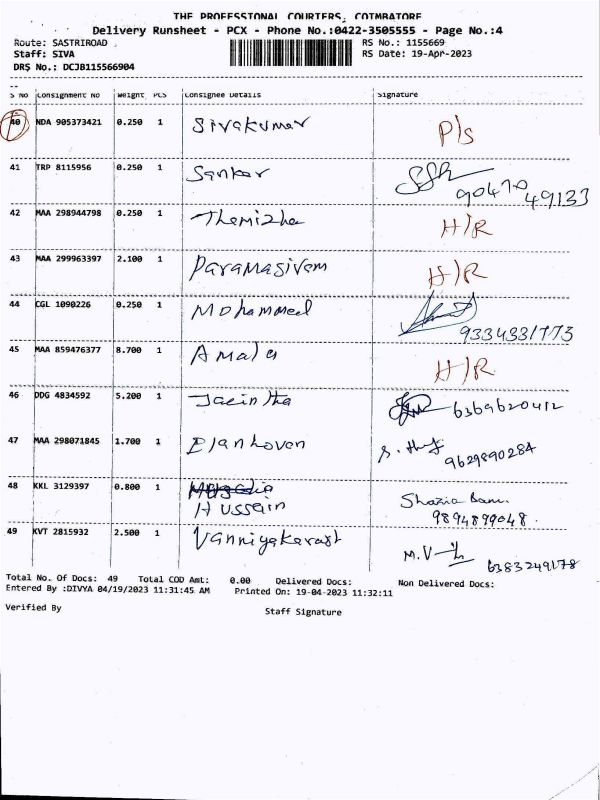 THE PROFESSIONAL COURIERS, COIMBATORE
Delivery Runsheet - PCX - Phone No.:0422-3505555 - Page No.:4
Route: SASTRIROAD RS No.: 1155669
Staff: SIVA RS Date: 19-Apr-2023
DRS No.: DCJB115566904
S No Consignment No Weight PCS Consignee Details Signature
40 NDA 905373421 0.250 1 Sivakumar P/s
41 TRP 8115956 0.250 1 Sankar 90470
49133
42 MAA 298944798 0.250 1 Themizha H/R
43 MAA 299963397 2.100 1 Paramasivam H/R
44 CGL 1090226 0.250 1 Mohammed 9334331773
45 MAA 859476377 8.700 1 Amala H/R
46 DDG 4834592 5.200 1 Jacintha 6369620412
47 MAA 298071845 1.700 1 Elanhoven 9629890284
48 KKL 3129397 0.800 1 Hussain Shazia Banu.
9894899048.
49 KVT 2815932 2.500 1 Vanniyakarast M.V 6383249178
Total No. Of Docs: 49 Total COD Amt: 0.00 Delivered Docs: Non Delivered Docs:
Entered By :DIVYA 04/19/2023 11:31:45 AM Printed On: 19-04-2023 11:32:11
Verified By Staff Signature